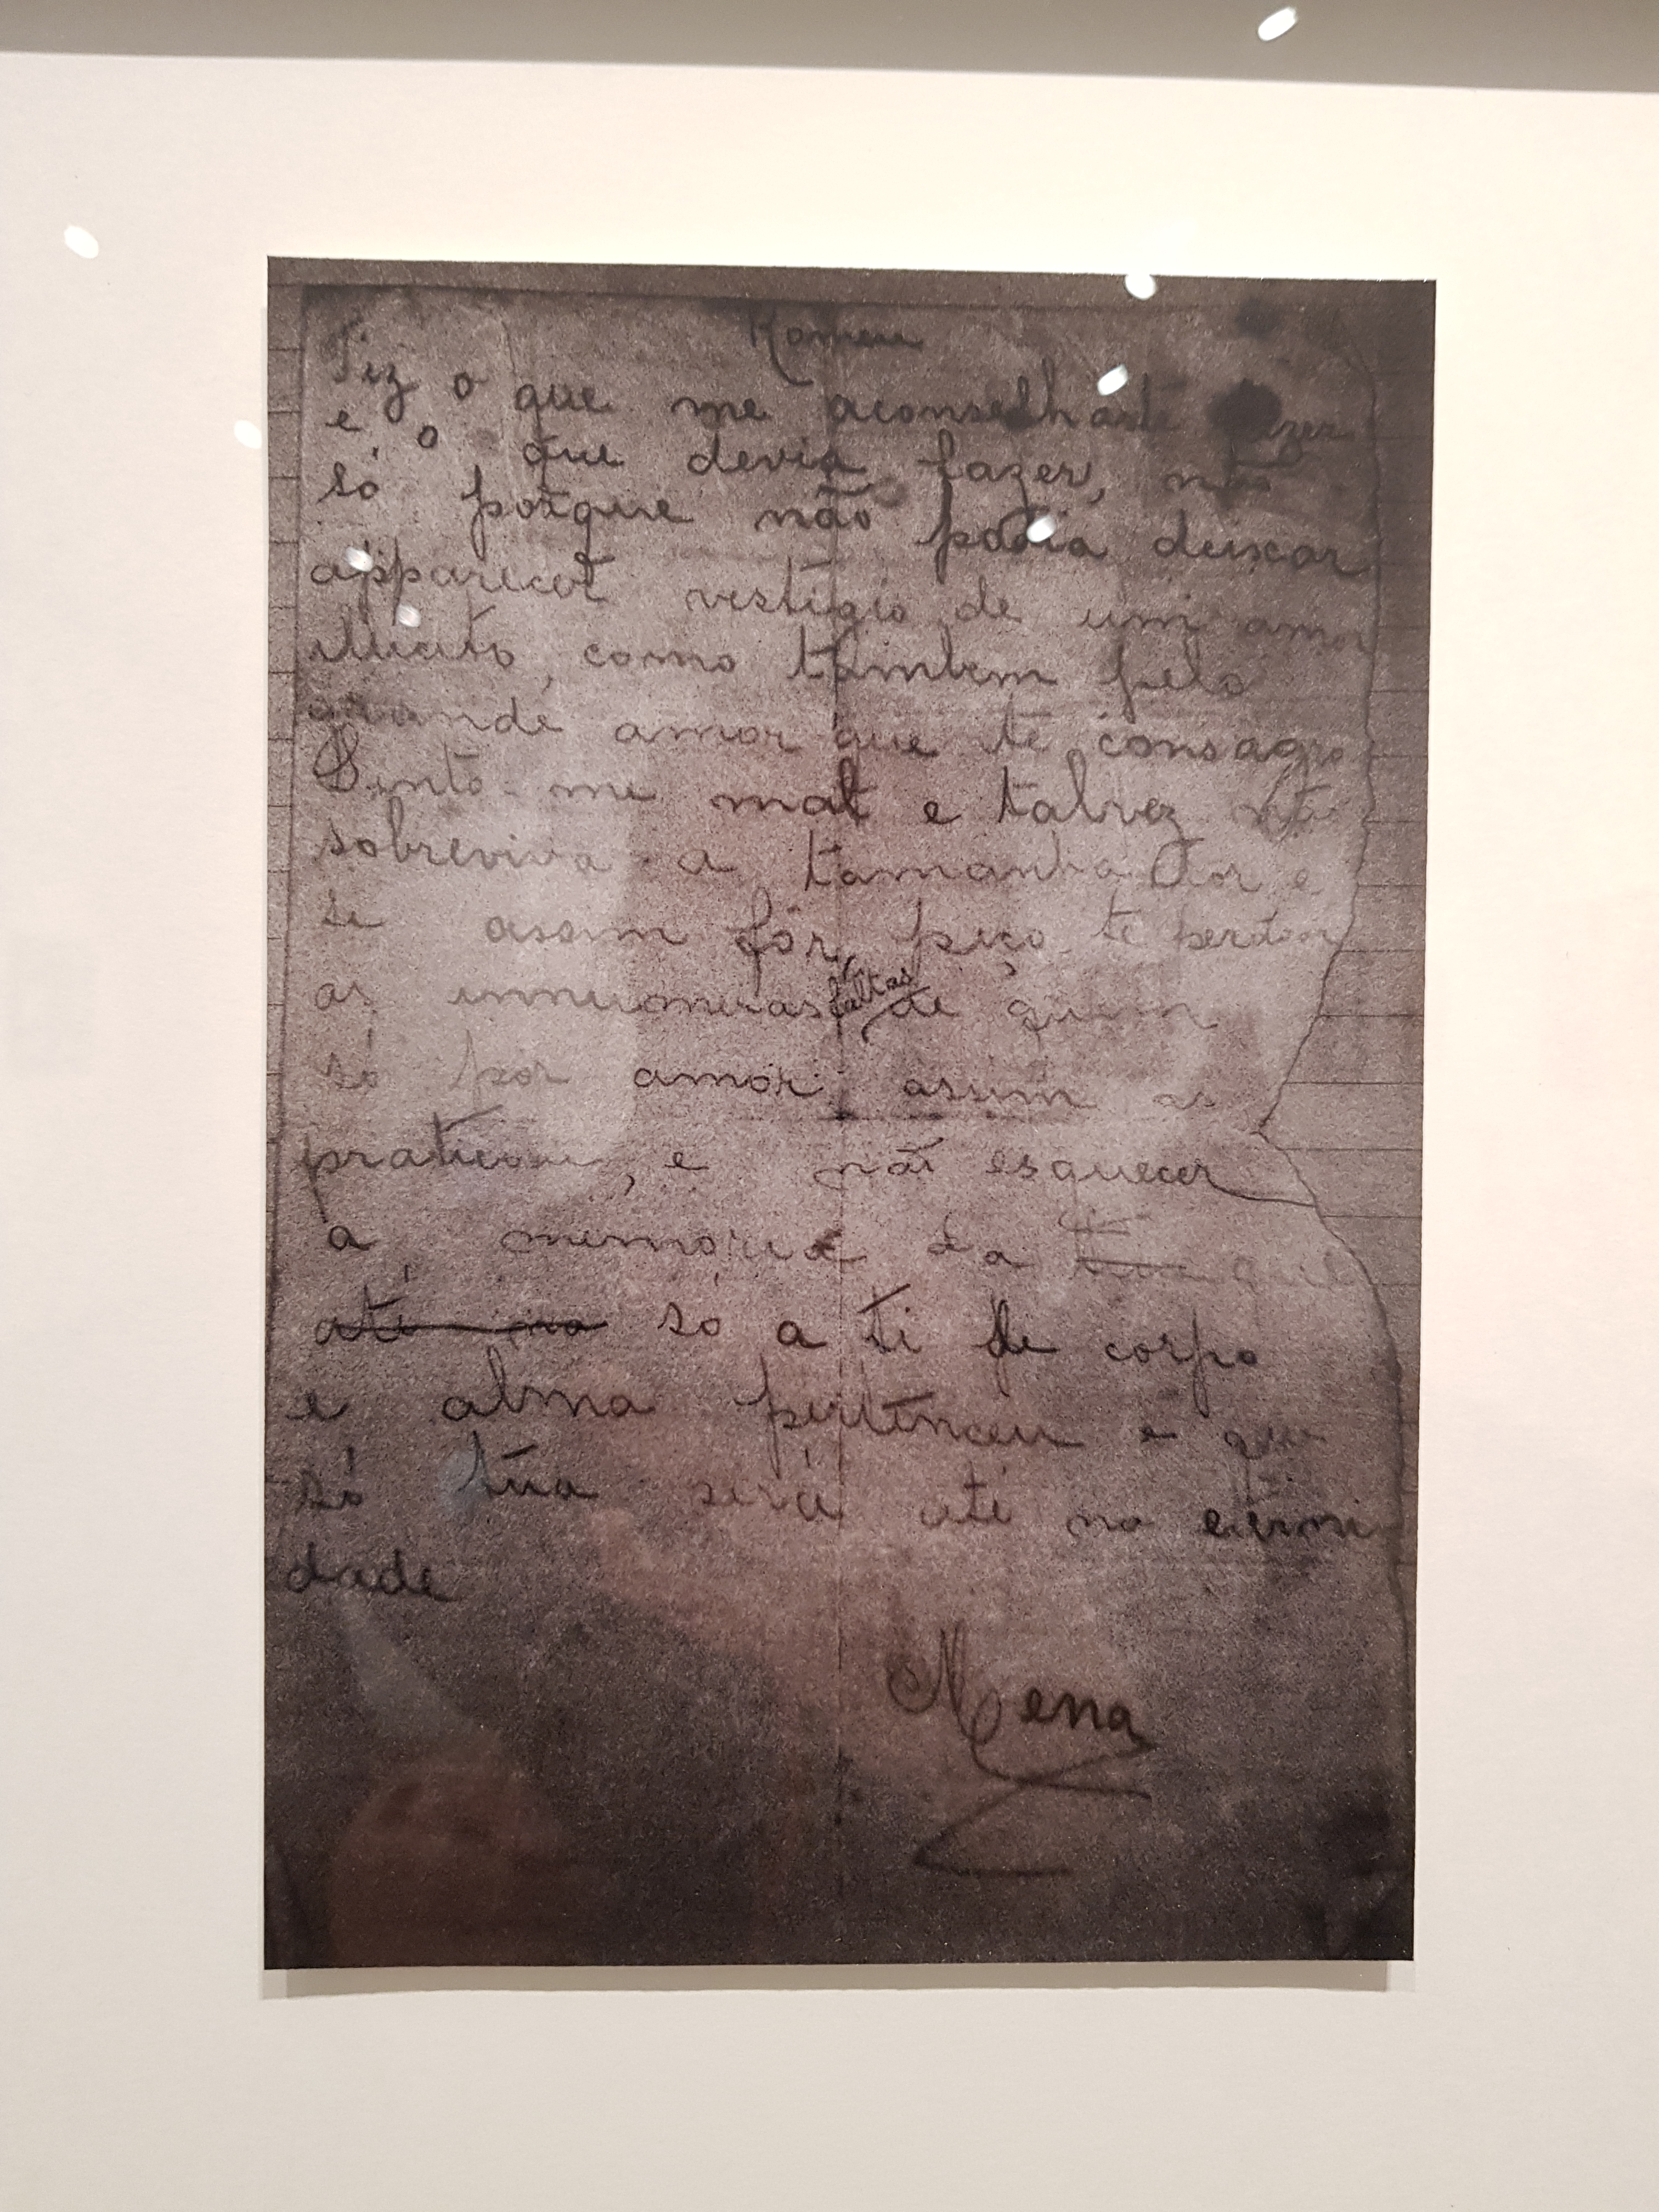 Romeu
Fiz o que me aconselhaste fazer
e o que devia fazer, não
só porque não podia deixar
apparecer vestigio de um amor
illicito, como tambem pelo
grande amor que te consagro
Sinto-me mal e talvez não
sobreviva a tamanha dor e
se assim fôr, peço te perdoar
as innumeras faltas de quem
só por amor assim as
praticou, e não esquecer
a memoria da que
até na só a ti de corpo
e alma pertenceu e que
só túa será até na eterni
dade
Mena